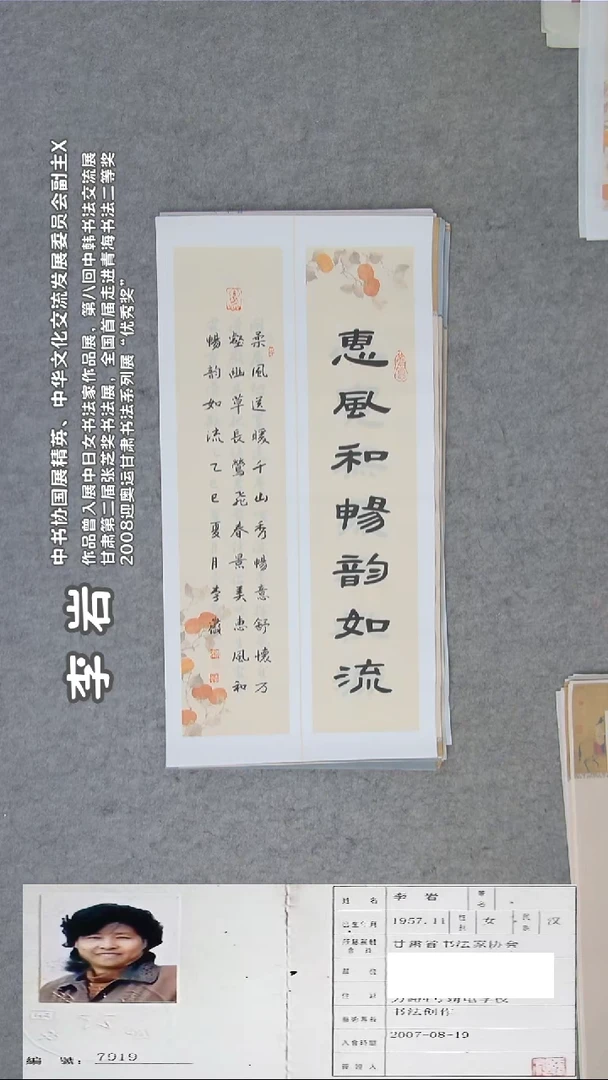 李岩
中书协国展精英、中华文化交流发展委员会副主X
作品曾入展中日女书法家作品展，第八回中韩书法交流展
甘肃第二届张芝奖书法展，全国首届走进青海书法二等奖
2008迎奥运甘肃书法系列展“优秀奖”
惠风和畅韵如流
柔風送暖千山秀暢意舒懷万
壑幽草長鶯飛春景美惠風和
暢韵如流乙巳夏月李岩
姓 名 李 岩
出生年月 1957.11 性别 女 民族 汉
甘肃省书法家协会
书法创作
入会時間 2007-08-19
编 號：7919